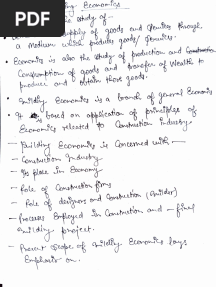 PDF
Economics
study of -
supply of goods and services through
a medium which produces goods/services.
• Economics is also the study of production and
Consumption of goods and transfer of wealth to
produce and obtain those goods.
• Building Economics is a branch of general Economics
• It is based on application of principles of
Economics related to Construction Industry.
- Building Economics is Concerned with -
- Construction Industry
- Its place in Economy
- Role of Construction firms
- Role of designers and Construction (Builder)
- Processes Employed in Construction and - final
Building project.
- Present scope of Building Economics lays
Emphasis on.